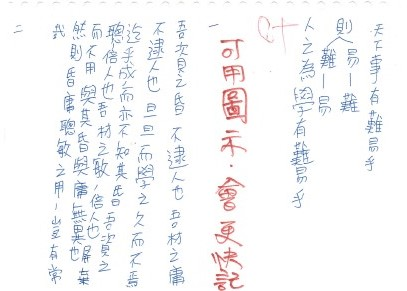 天下事有難易乎
則
易—難
難—易
人之為學有難易乎
C+
一
可用圖示.會更快記
吾資之昏 不逮人也 吾材之庸
不逮人也 旦旦而學之久而不怠
迄乎成而亦不知其昏 吾資之
聰倍人也吾材之敏,倍人也 屏棄
而不用 與其昏與庸無異也
然則昏庸聰敏之用,豈有常
我
二